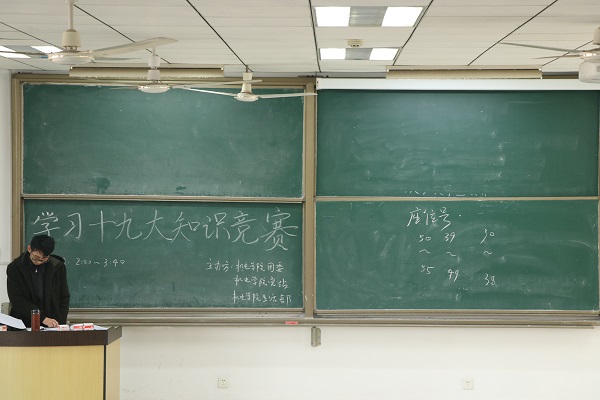 学习十九大知识竞赛
2:00~3:40
主办方:机电学院团委
机电学院党校
机电学院宣传部
座位号
50 39 30
~ ~ ~
55 49 38